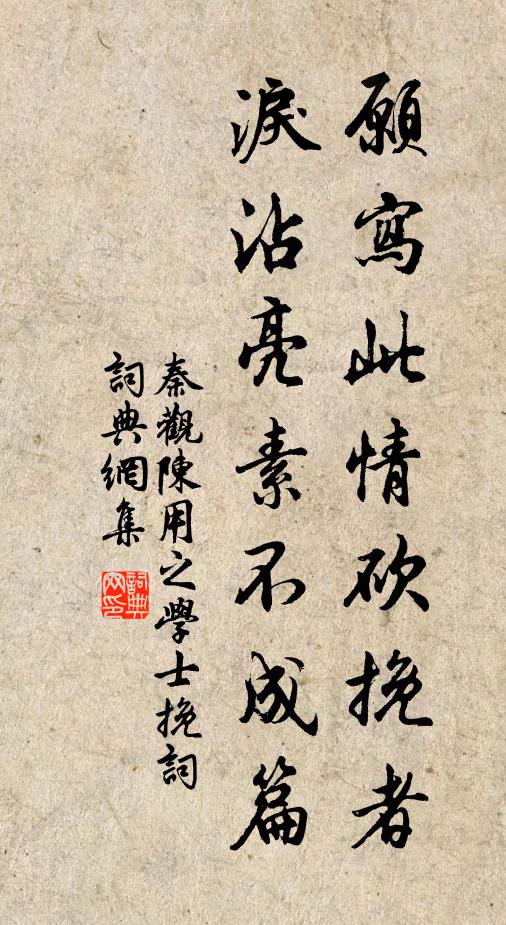 願寫此情砍挽者
淚沾亮素不成篇
秦觀陳用之學士挽詞
詞典網集
詞典网印